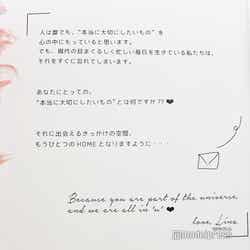 人は誰でも、“本当に大切にしたいもの”を
心の中にもっていると思います。
でも、現代の目まぐるしく忙しい毎日を生きている私たちは、
それをすぐに忘れてしまいます。
あなたにとっての、
“本当に大切にしたいもの”とは何ですか??❤
それに出会えるきっかけの空間、
もうひとつのHOMEとなりますように・・・
Because you are part of the universe,
and we are all in "u" ❤
love,